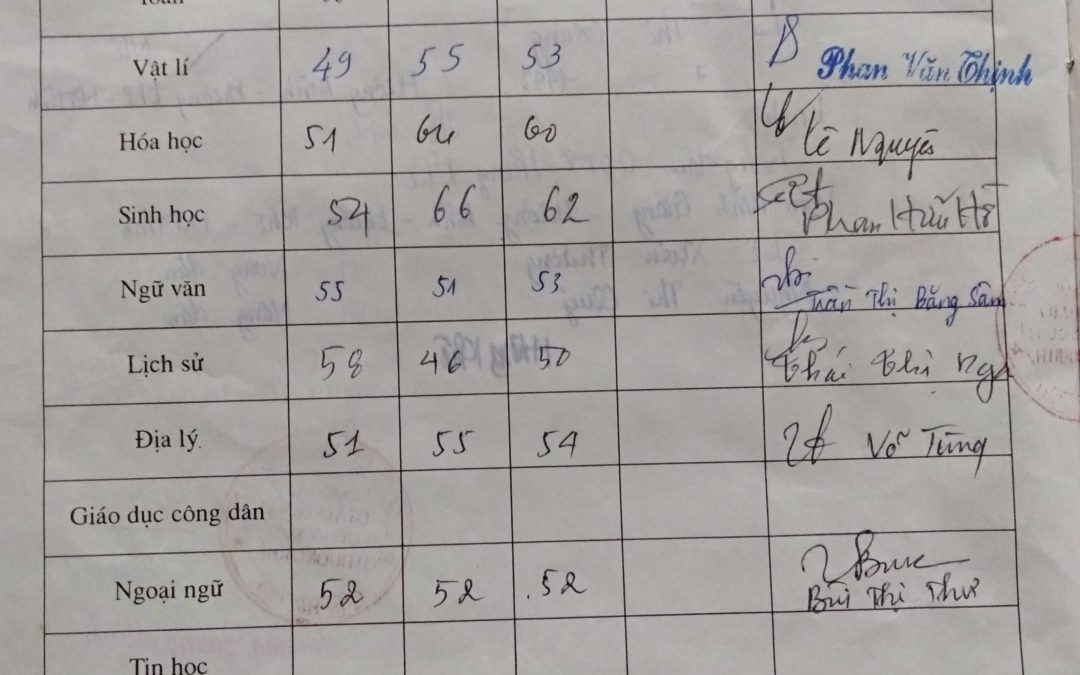 Vật lí 49 55 53 Phan Văn Thịnh
Hóa học 51 64 60 Lê Nguyên
Sinh học 54 66 62 Phan Hữu Hồ
Ngữ văn 55 51 53 Trần Thị Băng Sâm
Lịch sử 58 46 50 Thái Thị
Địa lý 51 55 54 Võ Tùng
Giáo dục công dân
Ngoại ngữ 52 52 52 Bùi Thị Thư
Tin học